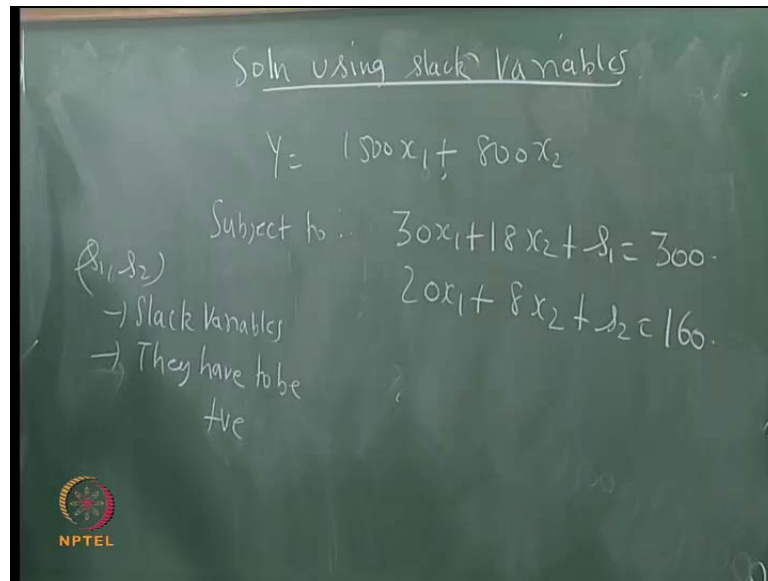 Soln using slack variables.
Y = 1500x₁ + 800x₂
Subject to :. 30x₁+18x₂+s₁ = 300.
20x₁+8x₂+s₂ = 160.
(s₁, s₂)
→ Slack Variables
→ They have to be
+ve
NPTEL